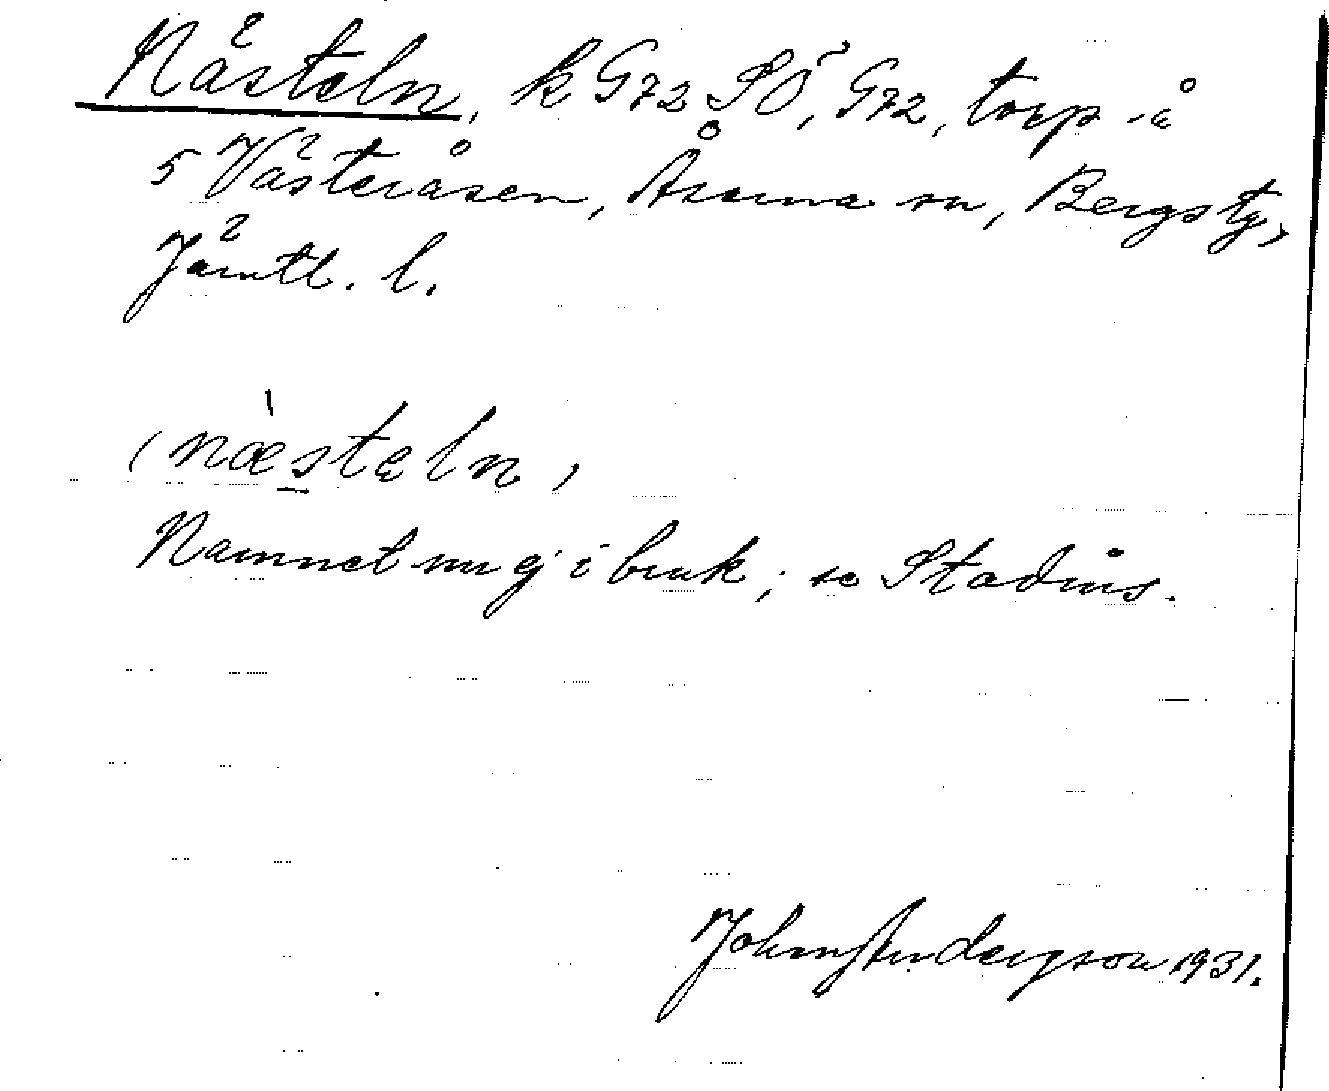 Nästeln, k G72 SÖ, G72, torp å
5 Västeråsen, Åsarna sn, Bergs tg,
Jämtl. l.
(næsteln,
Namnet nu ej i bruk; se Stadius.
John Andersson 1931.